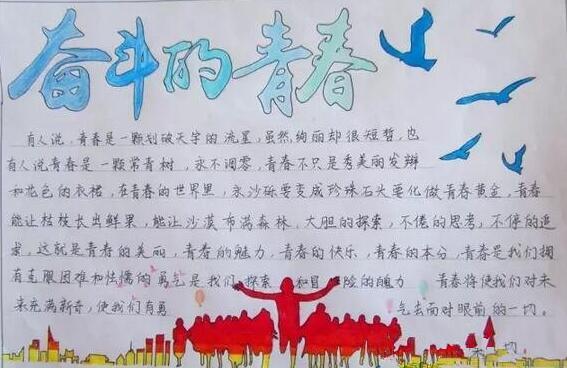 奋斗的青春
有人说，青春是一颗划破天宇的流星，虽然绚丽却很短暂，也
有人说青春是一颗常青树，永不凋零，青春不只是秀美丽发辫
和花色的衣裙，在青春的世界里，永沙砾要变成珍珠石头要化做青春黄金，青春
能让枯枝长出鲜果，能让沙漠布满森林，大胆的探索，不倦的思考，不停的追
求，这就是青春的美丽，青春的魅力，青春的快乐，青春的本分，青春是我们拥
有克服困难和怯懦的勇气是我们探索 和冒险的魄力 青春将使我们对未
来充满新奇，使我们有勇 气去面对眼前的一切。
切